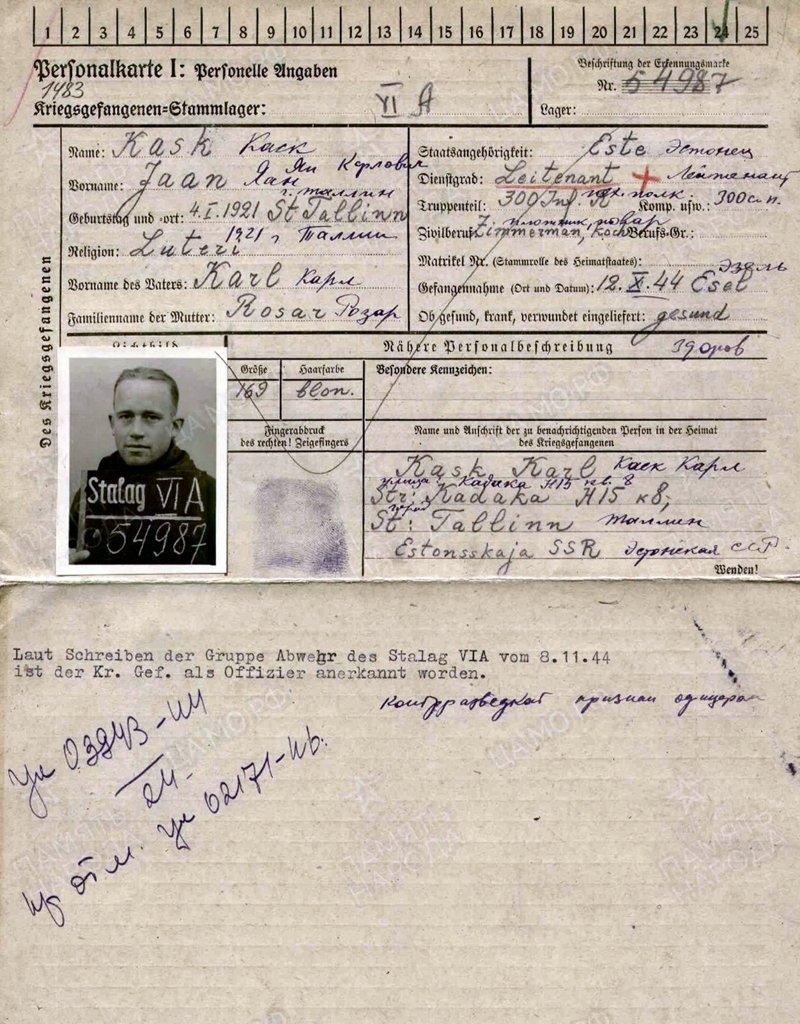 1 2 3 4 5 6 7 8 9 10 11 12 13 14 15 16 17 18 19 20 21 22 23 24 25
Personalkarte I: Personelle Angaben
1483
Kriegsgefangenen=Stammlager: VI A
Beschriftung der Erkennungsmarke
Nr. 54987
Lager:
Des Kriegsgefangenen
Name: Kask Каск
Ян Карлович
Vorname: Jaan Яан
г. Таллин
Geburtstag und -ort: 4.I.1921 St Tallinn
1921 г Таллин
Religion: Luteri
Vorname des Vaters: Karl Карл
Familienname der Mutter: Rosar Розар
Staatsangehörigkeit: Este Эстонец
Dienstgrad: Leitenant Лейтенант
пех. полк
Truppenteil: 300 Inf. R Komp. usw.: 300 с.п.
плотник, повар
Zivilberuf: Zimmerman, Koch Berufs-Gr.:
Matrikel Nr. (Stammrolle des Heimatstaates):
Эзель
Gefangennahme (Ort und Datum): 12.X.44 Esel
Ob gesund, krank, verwundet eingeliefert: gesund
здоров
Lichtbild
Nähere Personalbeschreibung
Größe Haarfarbe Besondere Kennzeichen:
169 blon.
Fingerabdruck
des rechten! Zeigefingers
Name und Anschrift der zu benachrichtigenden Person in der Heimat
des Kriegsgefangenen
Kask Karl Каск Карл
улица Кадака Н15 кв. 8
Str: Kadaka H15 k8;
город
St: Tallinn Таллин
Estonsskaja SSR Эстонская ССР.
Wenden!
Stalag VI A
54987
Laut Schreiben der Gruppe Abwehr des Stalag VIA vom 8.11.44
ist der Kr. Gef. als Offizier anerkannt worden.
контрразведкой признан офицером
03843-44
24.
02171-46.
ПАМЯТЬ
НАРОДА
ЦАМО.РФ